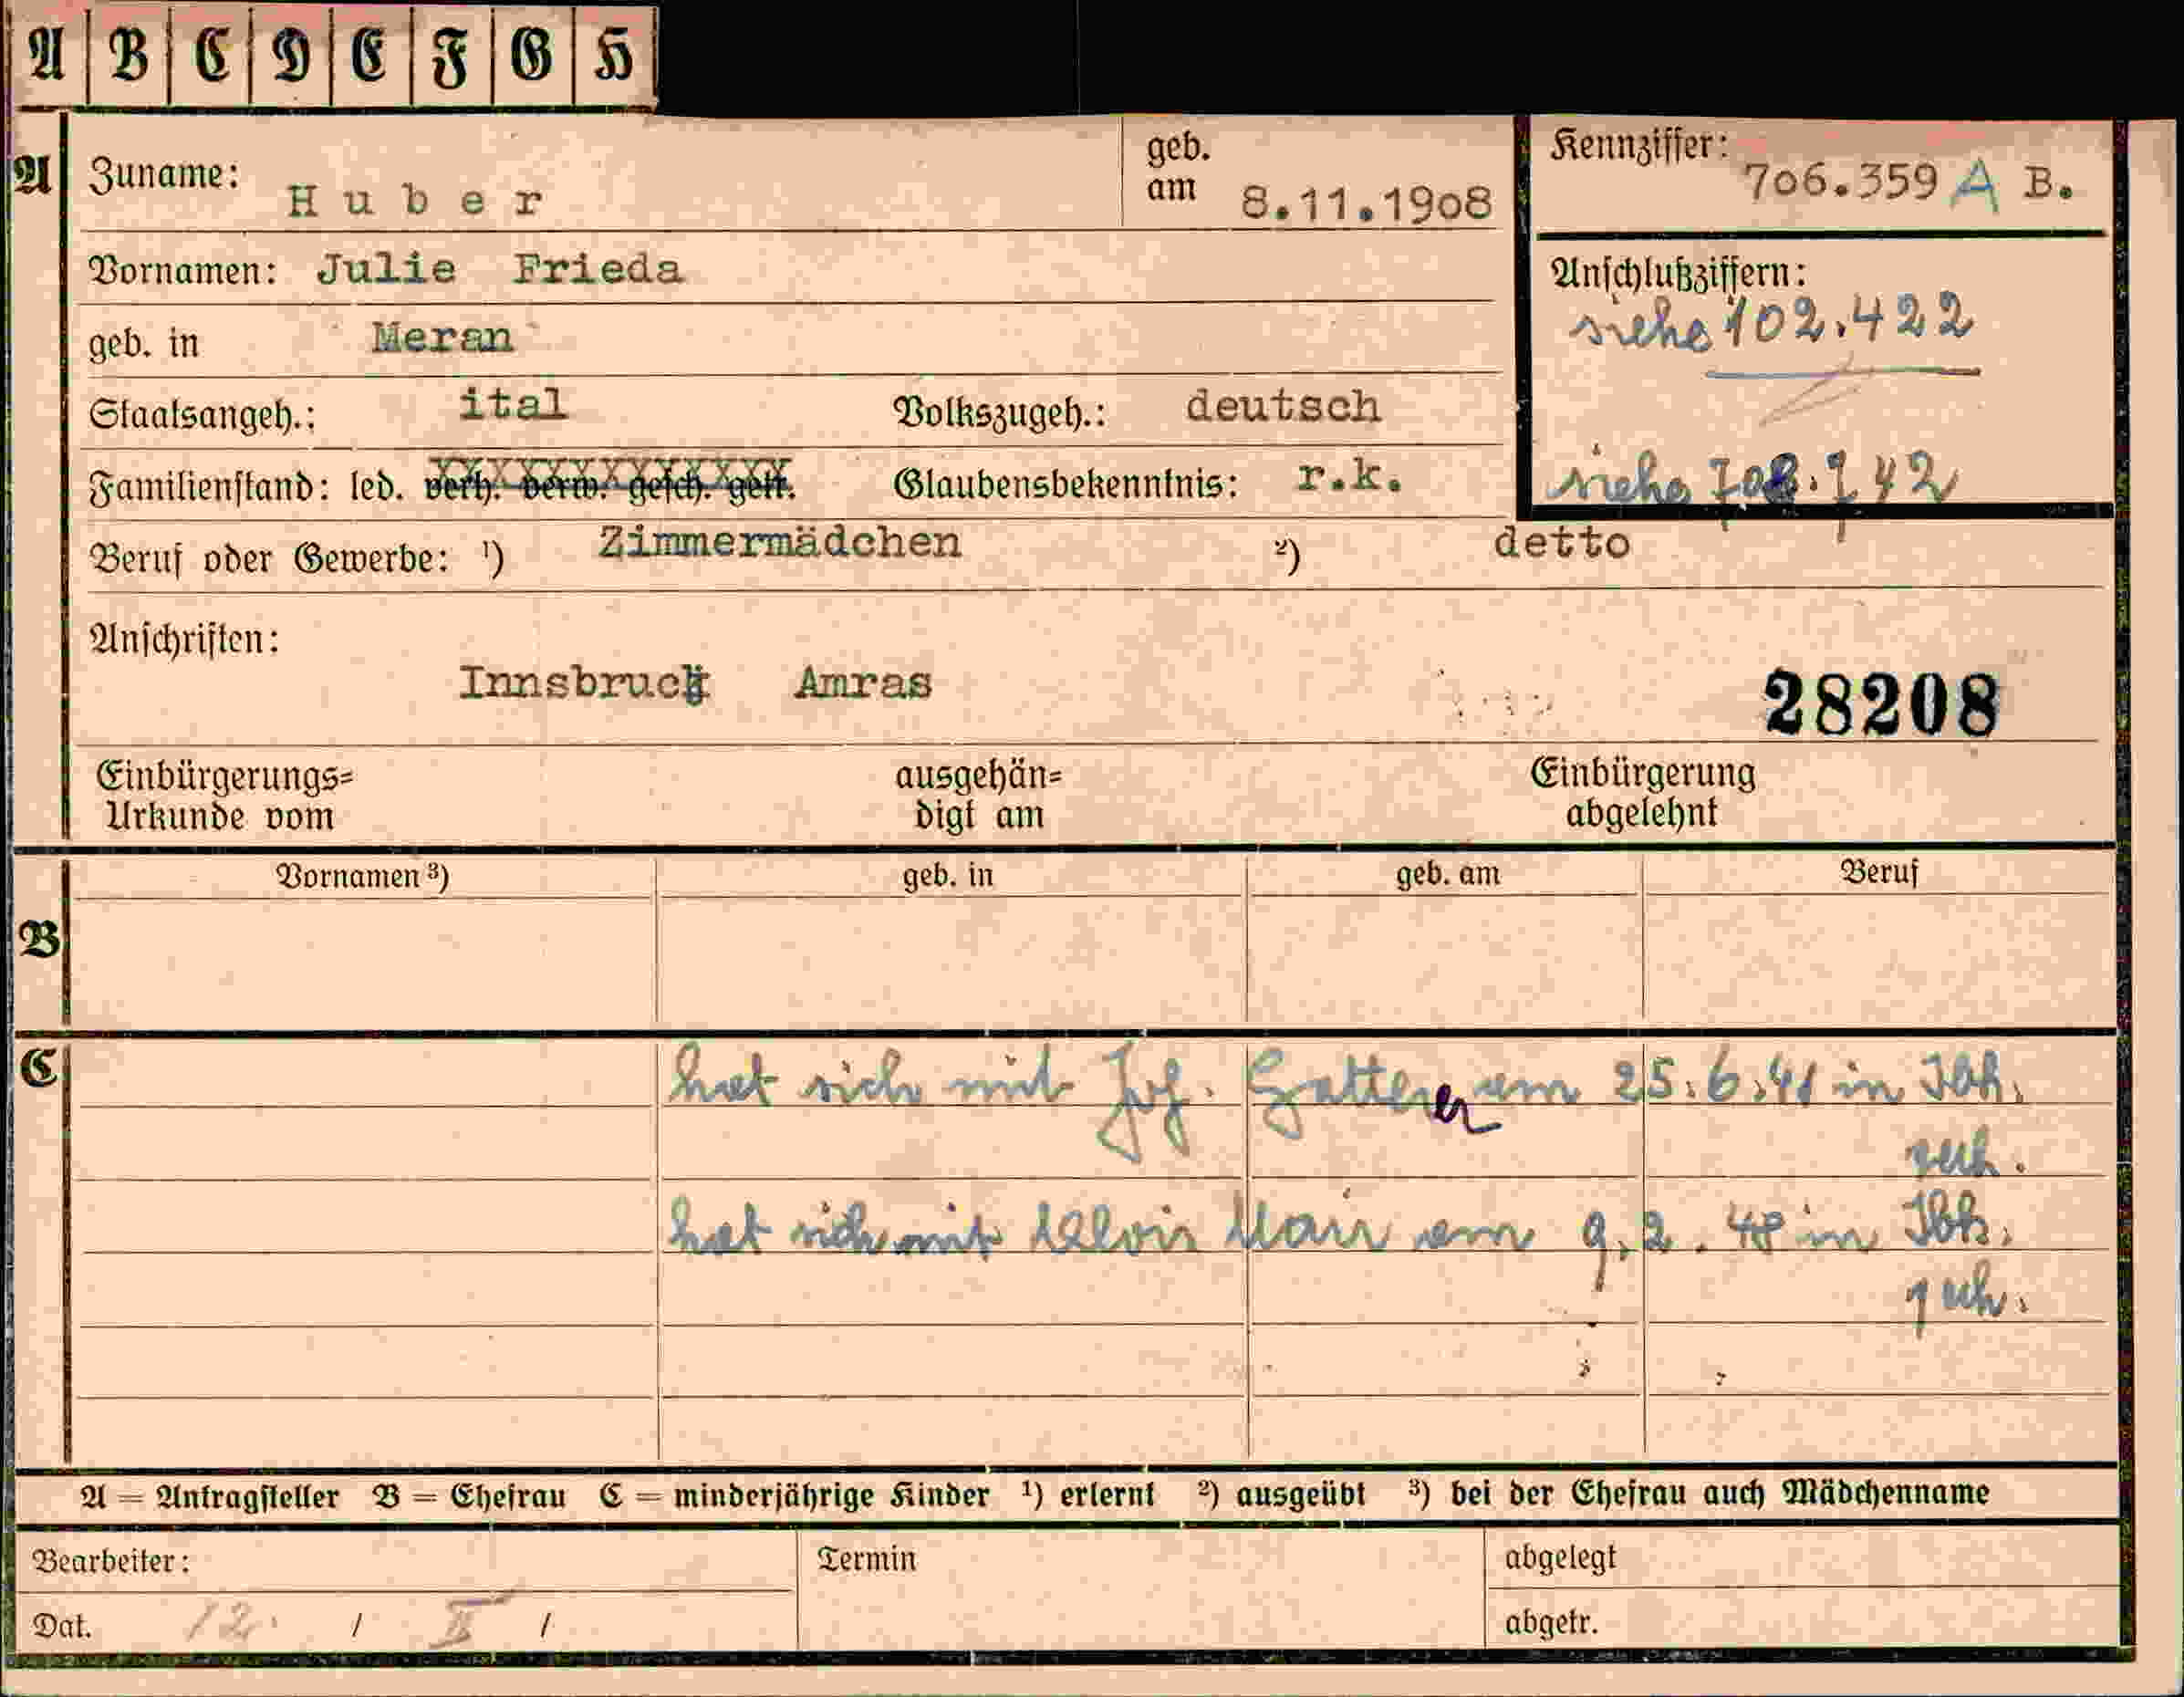 A B C D E F G H
A Zuname: Huber geb. am 8.11.1908 Kennziffer: 706.359 A B.
Vornamen: Julie Frieda Anschlußziffern:
geb. in Meran siehe 102.422
Staatsangeh.: ital Volkszugeh.: deutsch
Familienstand: led. verh. verw. gesch. getr. Glaubensbekenntnis: r.k. siehe
Beruf oder Gewerbe: ¹) Zimmermädchen ²) detto
Anschriften:
Innsbruck Amras 28208
Einbürgerungs= ausgehän= Einbürgerung
Urkunde vom digt am abgelehnt
Vornamen ³) geb. in geb. am Beruf
B
C hat sich mit Jos. Gatterer am 25.6.41 in Ibk.
verh.
hat sich mit Alois Mair am 9.2.48 in Ibk.
A = Antragsteller B = Ehefrau C = minderjährige Kinder ¹) erlernt ²) ausgeübt ³) bei der Ehefrau auch Mädchenname
Bearbeiter: Termin abgelegt
Dat. 12. / II / abgetr.